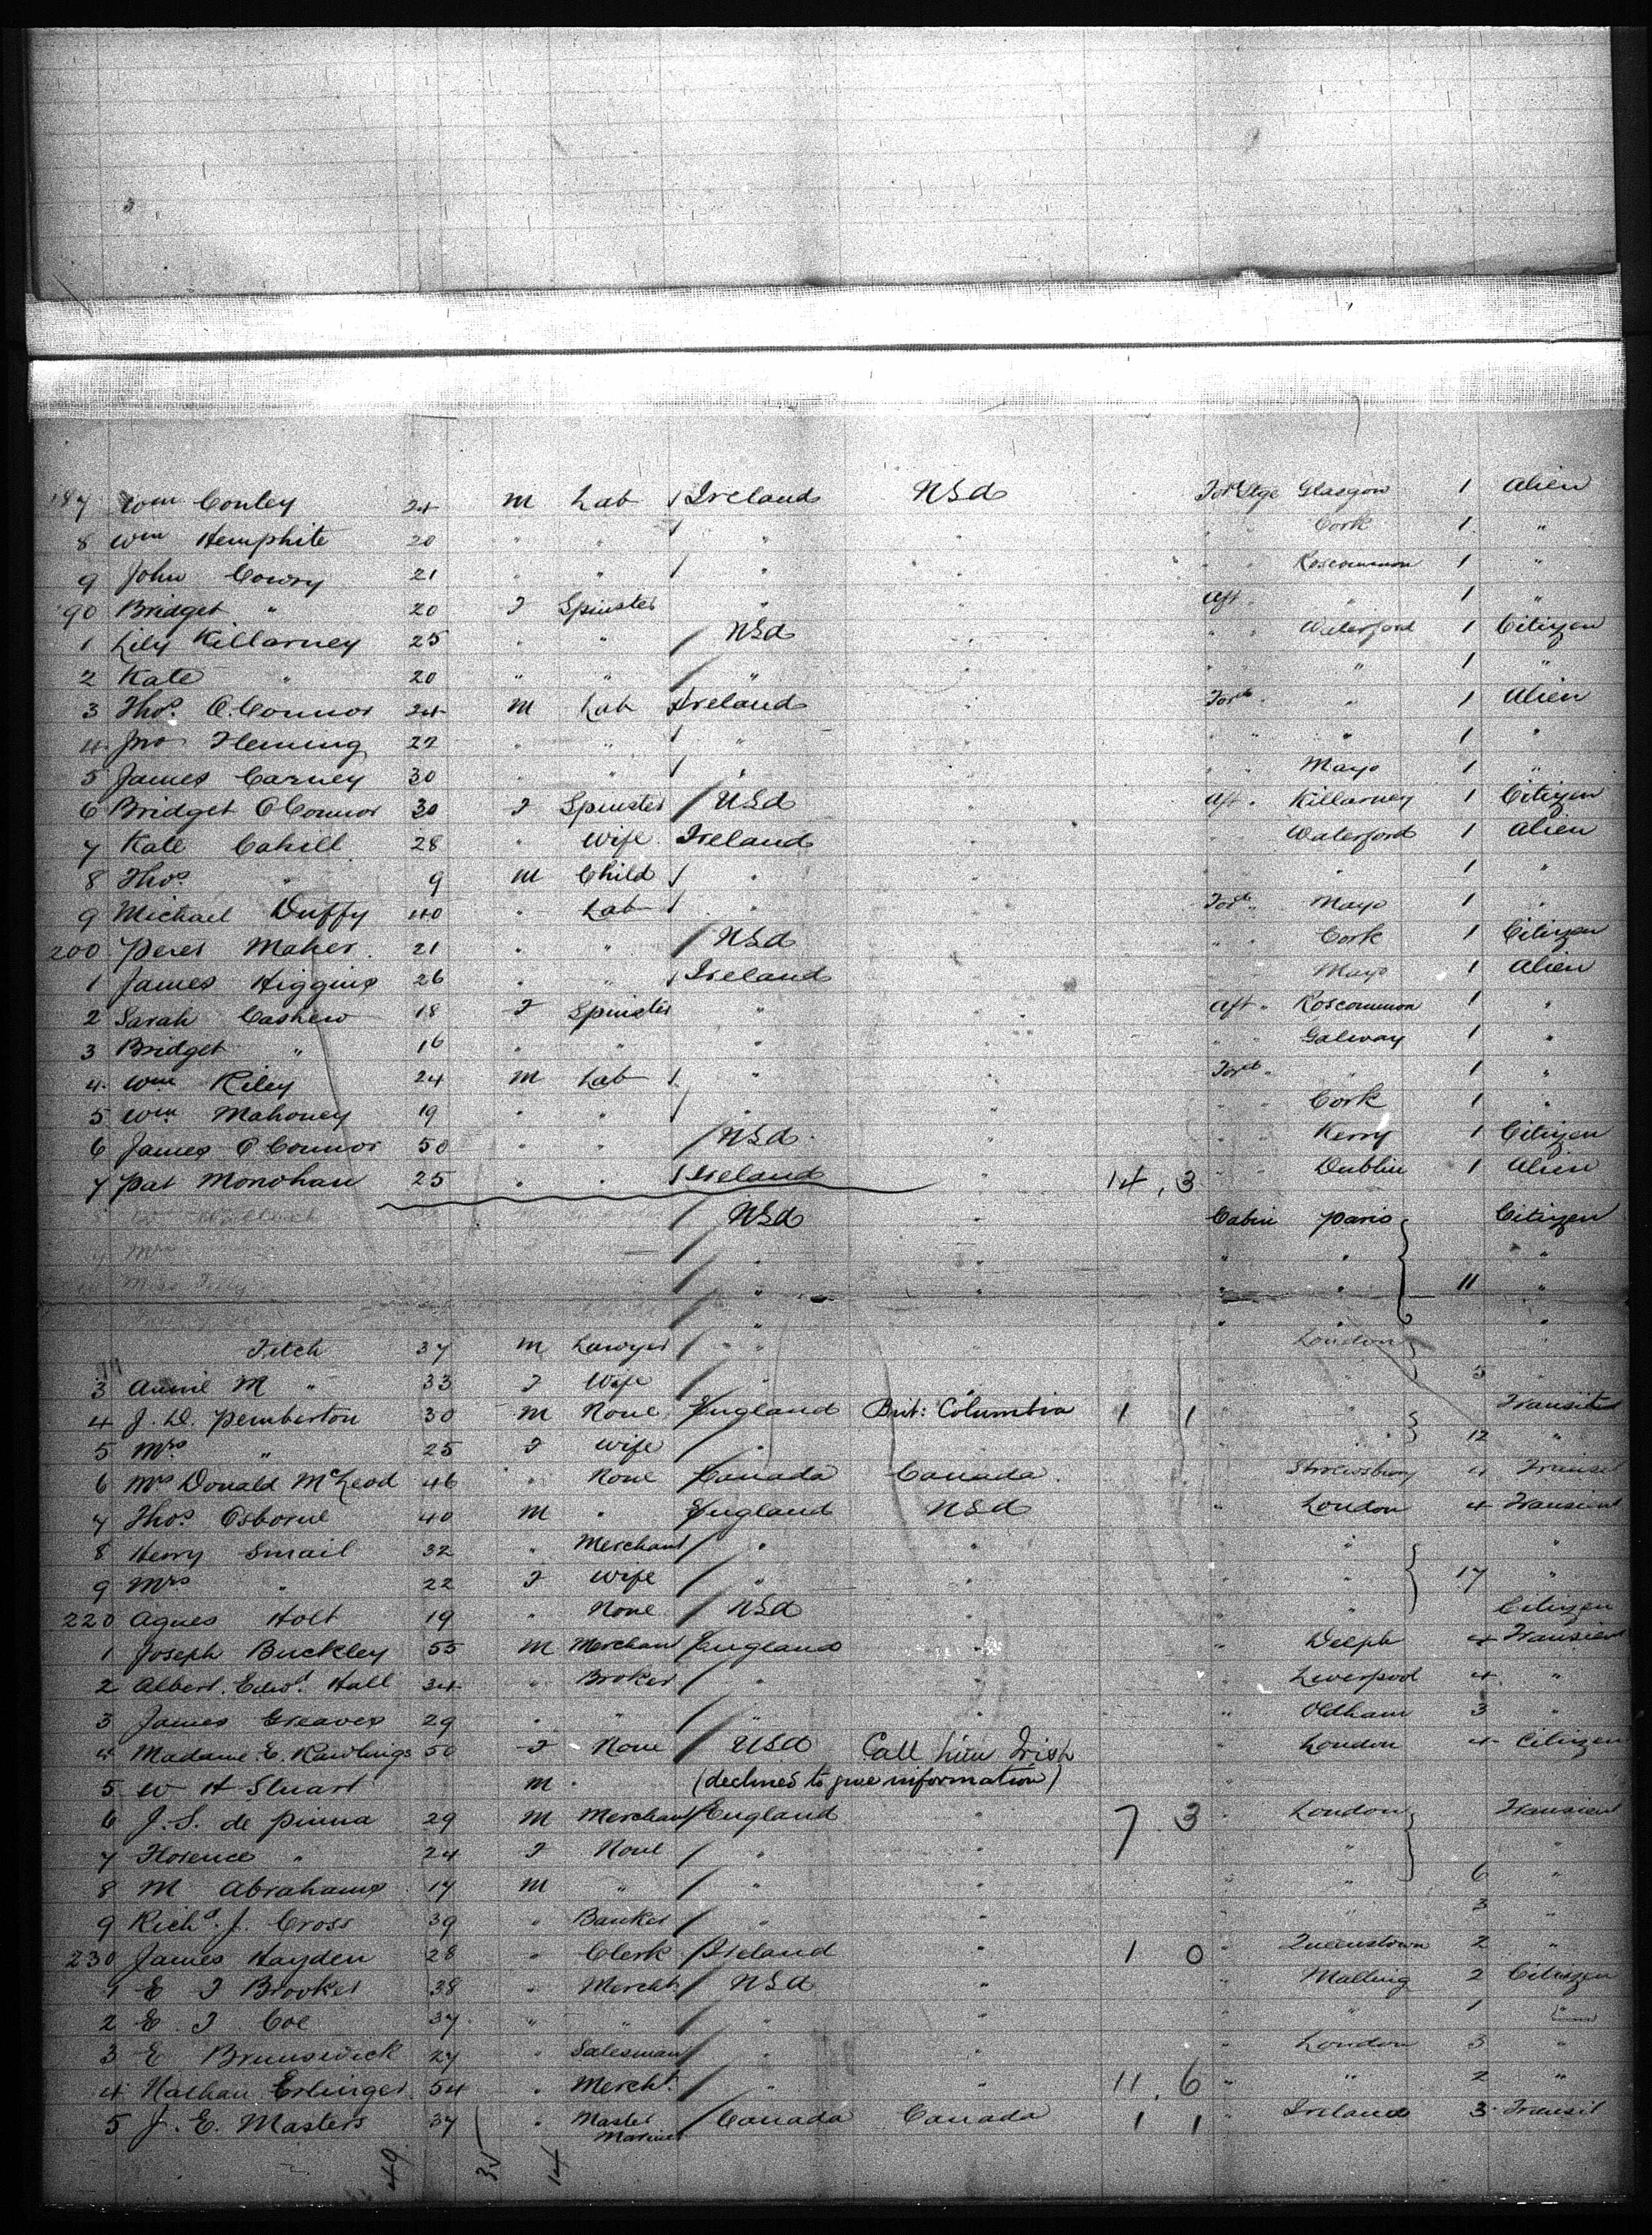 187 Wm Conley 24 M Lab / Ireland USA For Stge Glasgow 1 Alien
8 Wm Hemphite 20 " " / " " " " Cork 1 "
9 John Cowry 21 " " / " " " " Roscommon 1 "
190 Bridget " 20 F Spinster " " Aft " " 1 "
1 Lily Killarney 25 " " / USA " " " Waterford 1 Citizen
2 Kate " 20 " " / " " " " " 1 "
3 Thos. O.Connor 24 M Lab / Ireland " For'd " " 1 Alien
4 Jno Fleming 22 " " / " " " " " 1 "
5 James Carney 30 " " / " " " " Mayo 1 "
6 Bridget O Connor 30 F Spinster / USA " Aft " Killarney 1 Citizen
7 Kate Cahill 28 " Wife Ireland " " Waterford 1 Alien
8 Thos. " 9 M Child / " " " " 1 "
9 Michael Duffy 40 " Lab / " " For'd " Mayo 1 "
200 Peter Maher 21 " " / USA " " " Cork 1 Citizen
1 James Higgins 26 " " / Ireland " " " Mayo 1 Alien
2 Sarah Cashew 18 F Spinster " " Aft " Roscommon 1 "
3 Bridget " 16 " " " " " " Galway 1 "
4 Wm Riley 24 M Lab / " " For'd " " 1 "
5 Wm Mahoney 19 " " / " " " " Cork 1 "
6 James O Connor 50 " " / USA " " " Kerry 1 Citizen
7 Pat Monohan 25 " " / Ireland " 14 . 3 " " Dublin 1 Alien
/ USA " Cabin Paris Citizen
Mrs / " " " " "
Miss / " " " " 11 "
/ " " " "
Fitch 37 M Lawyer / " " London "
3 Annie M " 33 F Wife / " " " " 5 "
4 J. D. Pemberton 30 M None / England Brit: Columbia 1 1 " " Transit
5 Mrs. " 25 F Wife / " " " " 12 "
6 Mrs Donald McLeod 46 " None / Canada Canada " Shrewsbury 4 Transit
7 Thos. Osborne 40 M " / England USA " London 4 Transient
8 Henry Smail 32 " Merchant / " " " " "
9 Mrs " 22 F Wife / " " " " 17 "
220 Agnes Holt 19 " None / USA " " " Citizen
1 Joseph Buckley 55 M Merchant / England " " Delph 4 Transient
2 Albert. Edwd. Hall 34 " Broker / " " " Liverpool 4 "
3 James Greaves 29 " " / " " " Oldham 3 "
4 Madame E. Rawlings 50 F None / USA Call him Irish " London 4 Citizen
5 W H Stuart M " (declined to give information) "
6 J. S. de Pinna 29 M Merchant / England " 7 3 " London Transient
7 Florence " 24 F None / " " " " "
8 M Abrahams 17 M " / " " " " 6 "
9 Richd. J. Cross 39 " Banker / " " " " 3 "
230 James Hayden 28 " Clerk / Ireland " 1 0 " Queenstown 2 "
1 E F Brooker 38 " Mercht / USA " " Malling 2 Citizen
2 E. F. Coe 37 " " / " " " " 1 "
3 E Brunswick 27 " Salesman / " " " London 3 "
4 Nathan Erlinger 54 " Mercht. / " " 11 . 6 " " 2 "
5 J. E. Masters 37 " Master Mariner / Canada Canada 1 1 " Ireland 3 Transit
49 35 14